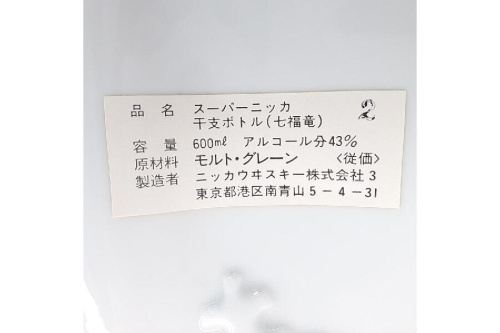 品名 スーパーニッカ
干支ボトル(七福竜)
容量 600ml アルコール分43%
原材料 モルト・グレーン <従価>
製造者 ニッカウヰスキー株式会社3
東京都港区南青山5-4-31